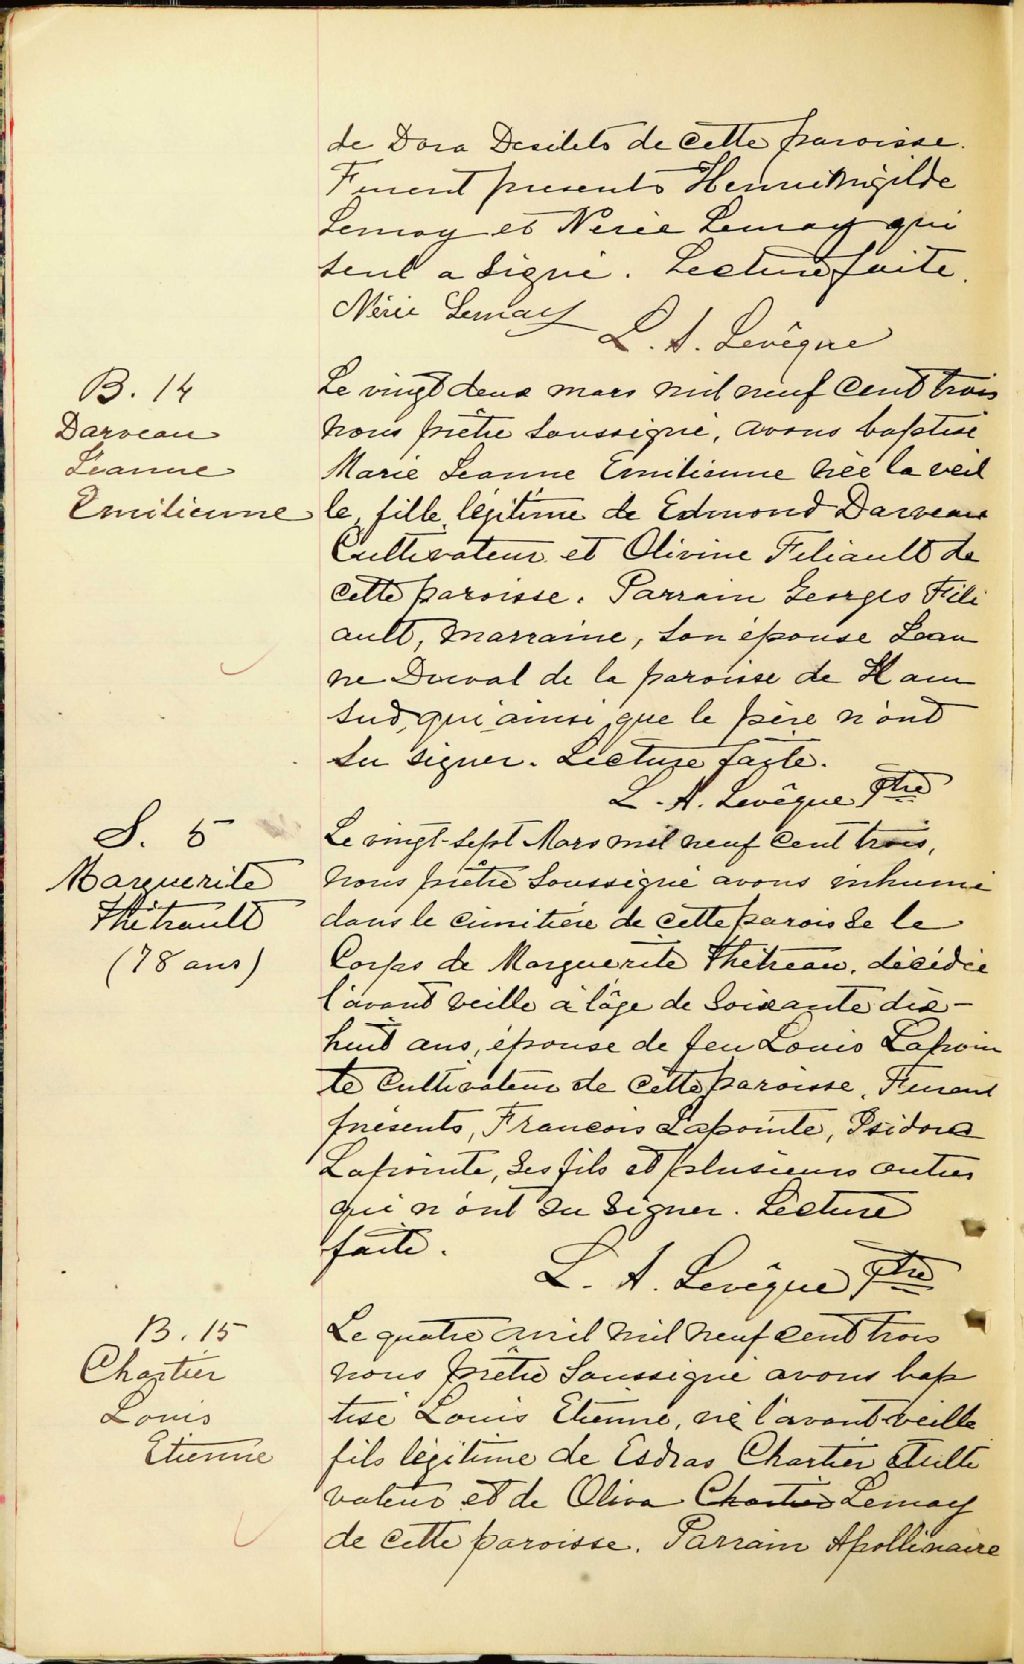 de Dora Desilets de cette paroisse.
Furent presents Hermenigilde
Lemay et Nérée Lemay qui
seul a signé. Lecture faite.
Nérée Lemay
L. A. Levêque
B. 14
Darveau
Jeanne
Emilienne
Le vingt deux mars mil neuf cent trois
nous prêtre soussigné, avons baptisé
Marie Jeanne Emilienne née la veil
le, fille légitime de Edmond Darveau
Cultivateur et Olivine Filiault de
cette paroisse. Parrain Georges Fili
ault, marraine, son épouse Jean
ne Duval de la paroisse de Ham
Sud, qui ainsi que le père n'ont
su signer. Lecture faite.
L. A. Levêque Ptre
S. 5
Marguerite
Thétrault
(78 ans)
Le vingt-sept Mars mil neuf cent trois,
nous prêtre soussigné avons inhumé
dans le cimitière de cette paroisse le
Corps de Marguerite Thétreau, décédée
l'avant veille à l'âge de soixante dix-
huit ans, épouse de feu Louis Lapoin
te Cultivateur de cette paroisse. Furent
présents, Francois Lapointe, Isidore
Lapointe, ses fils et plusieurs autres
qui n'ont su signer. Lecture
faite.
L. A. Levêque Ptre
B. 15
Chartier
Louis
Etienne
Le quatre avril mil neuf cent trois
nous prêtre soussigné avons bap
tisé Louis Etienne, né l'avant veille
fils légitime de Esdras Chartier Culti
vateur et de Oliva Chartier Lemay
de cette paroisse. Parrain Apollinaire